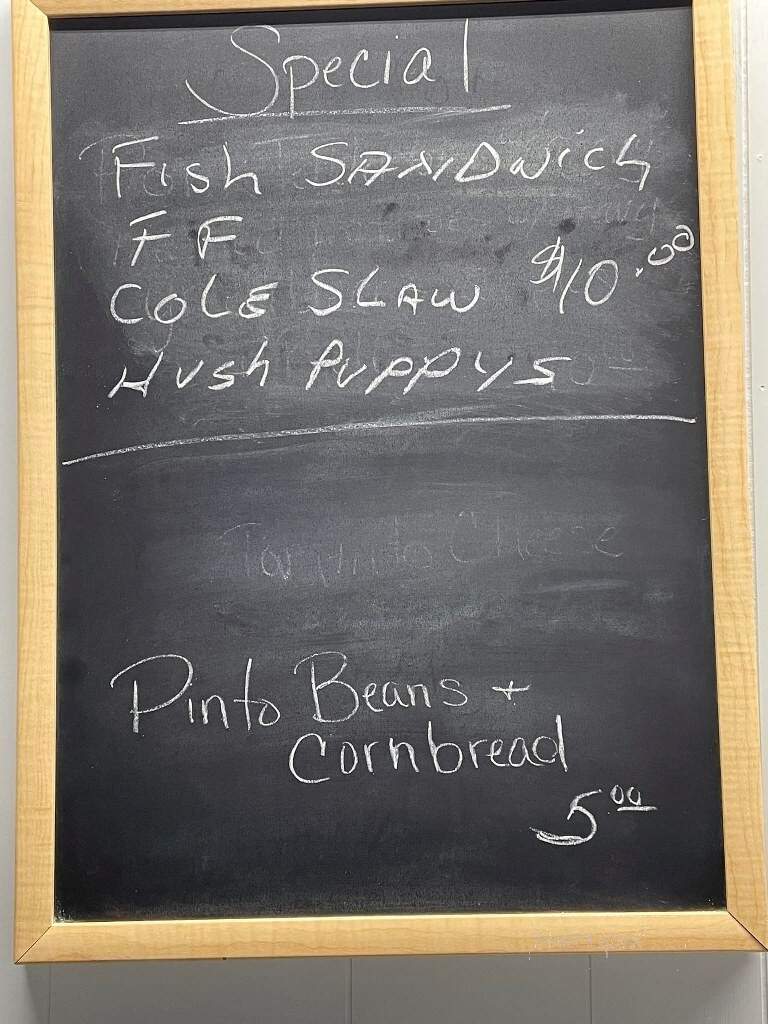 Special
Fish SANDwich
FF
COLE SLAW $10.00
Hush PUPPYS
Cheese
Pinto Beans +
Cornbread
5 00